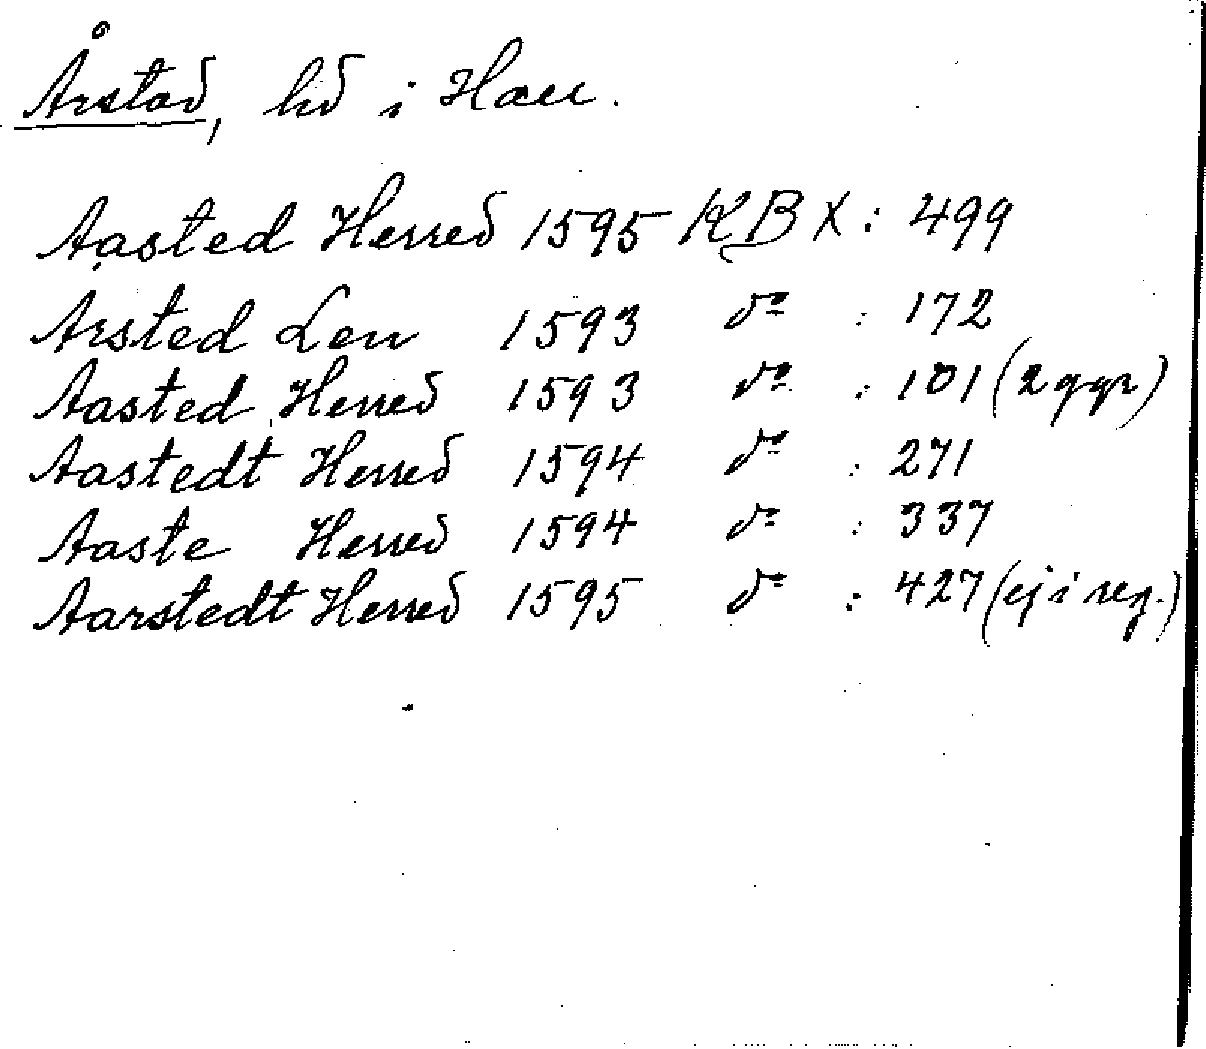 Årstad, hd i Hall.
Aasted Herred 1595 KB X : 499
Arsted Len 1593 do : 172
Aasted Herred 1593 do : 101 (2 ggr)
Aastedt Herred 1594 do : 271
Aaste Herred 1594 do : 337
Aarstedt Herred 1595 do : 427 (ej i reg.)